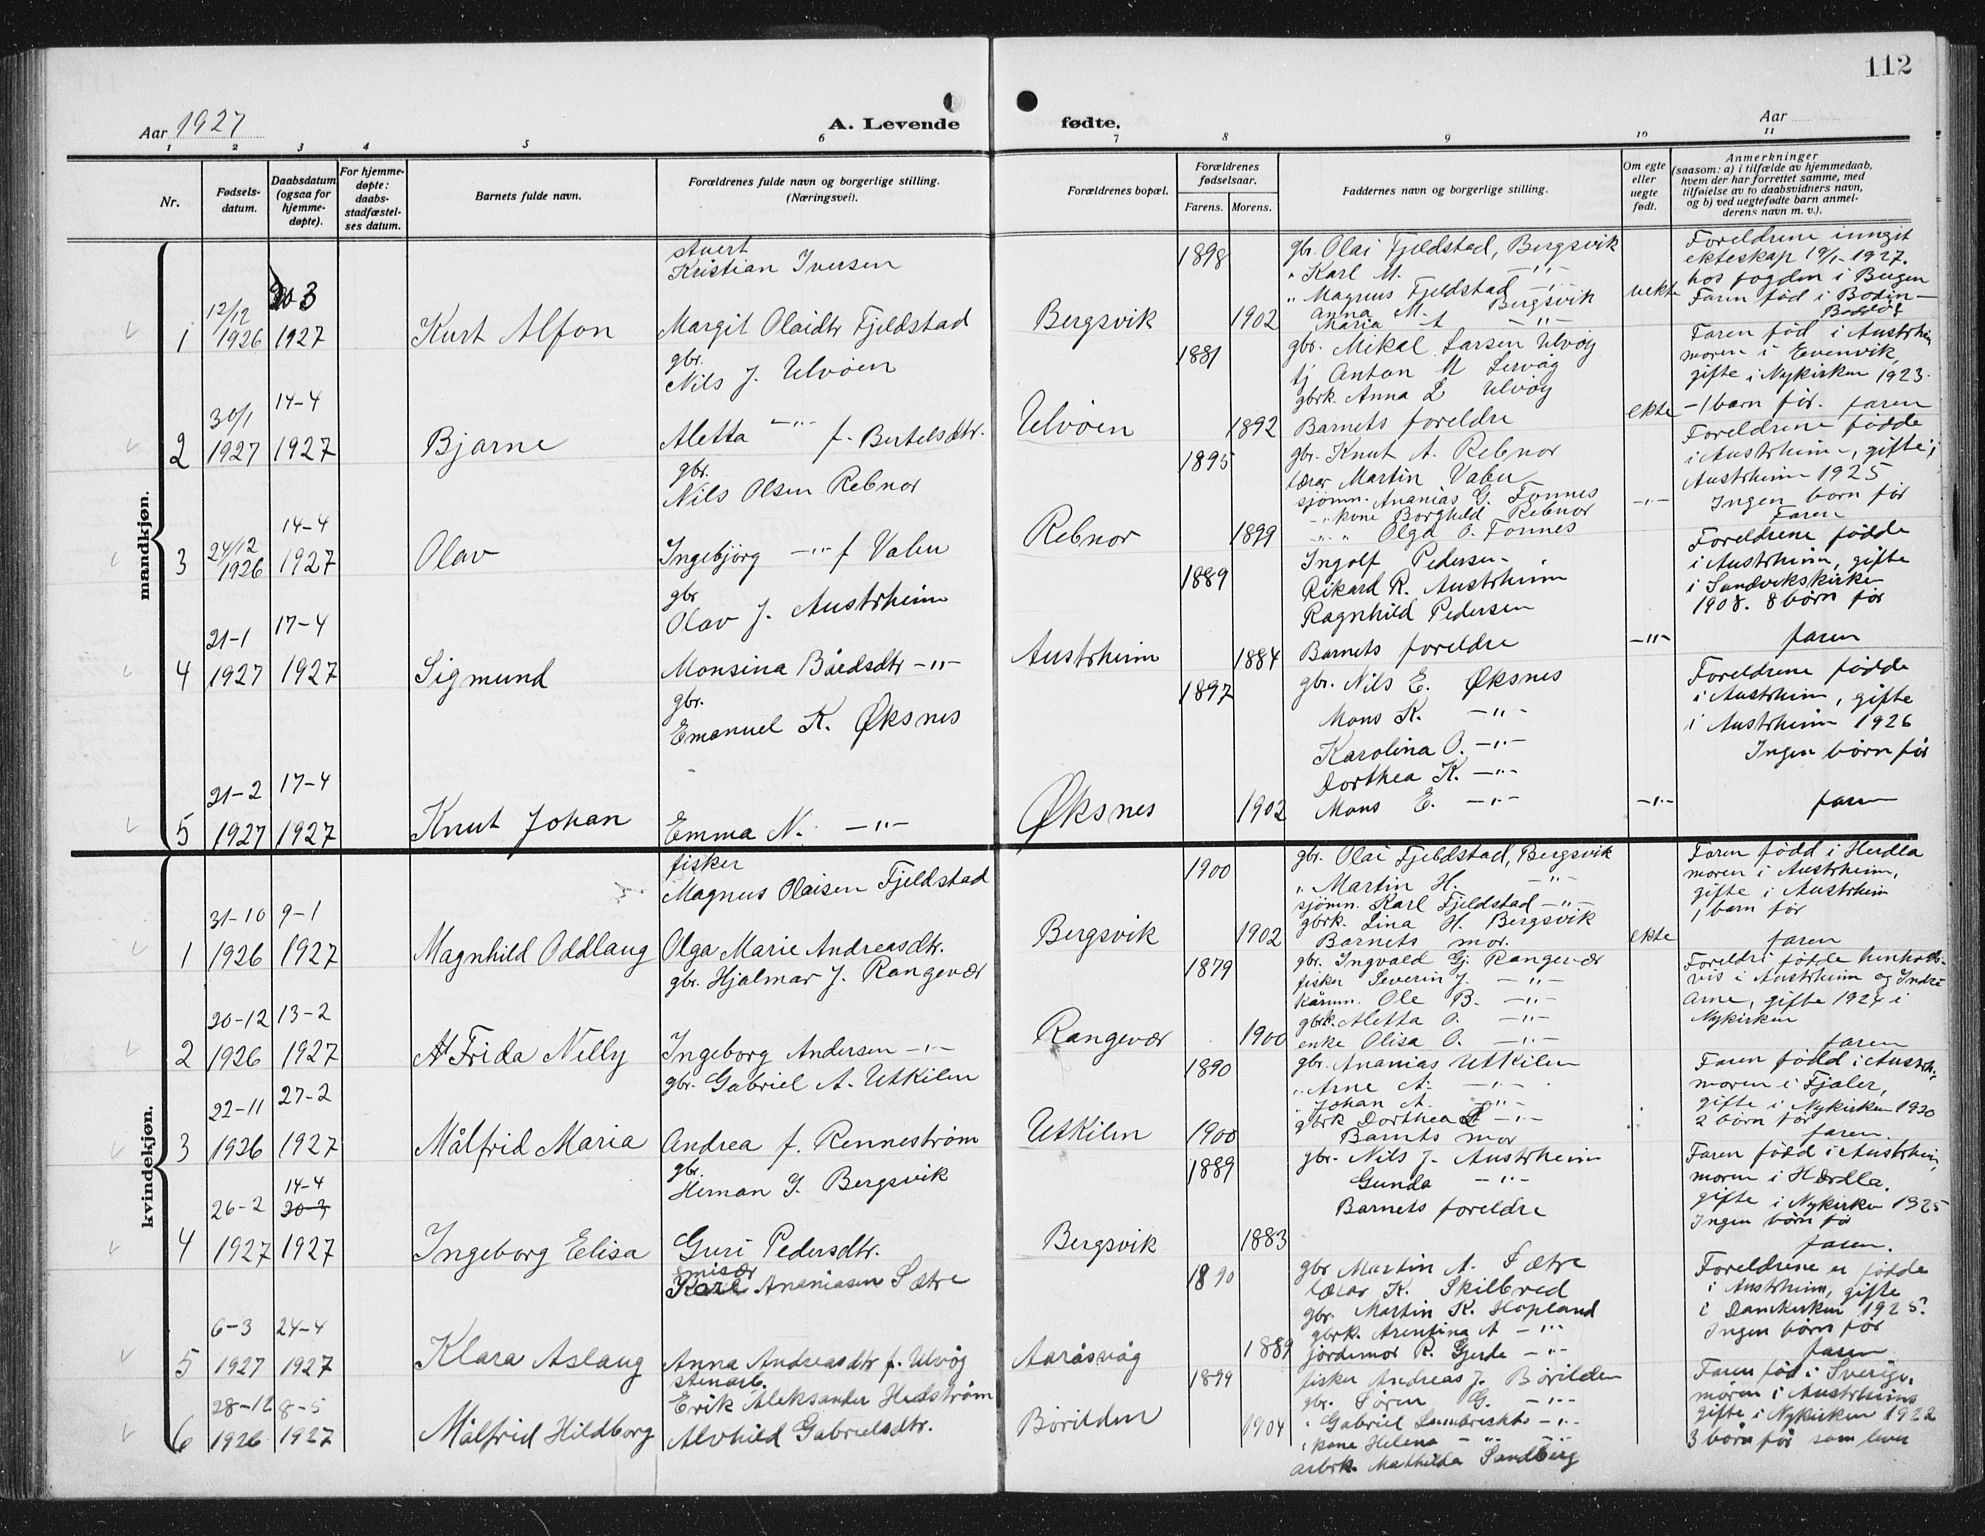 112
Aar 1927
A. Levende fødte.
Aar
1 2 3 4 5 6 7 8 9 10 11
Nr.
Fødsels-datum.
Daabsdatum (ogsaa for hjemme-døpte).
For hjemme-døpte: daabs-stadfæstel-ses datum.
Barnets fulde navn.
Forældrenes fulde navn og borgerlige stilling. (Næringsvei).
Forældrenes bopæl.
Forældrenes fødselsaar.
Farens. Morens.
Faddernes navn og borgerlige stilling.
Om egte eller uegte født.
Anmerkninger
(saasom: a) i tilfælde av hjemmedaab, hvem der har forrettet samme, med tilføielse av to daabsvidners navn, og b) ved uegtefødte barn anmel-derens navn m. v.).
mandkjøn.
1
12/12 1926
1927
Kurt Alfon
stuert
Kristian Iversen
Margit Olaidtr Fjeldstad
Bergsvik
1898
1902
gbr. Olai Fjeldstad, Bergsvik
" Karl M. -"-
" Magnus Fjeldstad -"-
Anna M. Bergsvik
Maria A -"-
uekte
Foreldrene inngit
ekteskap 19/1-1927.
hos fogden i Bergen
Faren fød i Bodin-
2
30/1 1927
14-4 1927
Bjarne
gbr.
Nils J. Ulvøen
Aletta -"- f. Bertelsdtr.
Ulvøen
1881
1892
gbr. Mikal Larsen Ulvøy
tj Anton M Lervåg
gbrk. Anna L Ulvøy
Barnets foreldre
ekte
Faren fød i Austrheim
moren i Evenvik,
gifte i Nykirken 1923.
-1 barn før. faren
3
24/12 1926
14-4 1927
Olav
gbr.
Nils Olsen Rebnor
Ingebjørg -"- f Vabu
Rebnor
1895
1899
gbr. Knut A. Rebnor
lærar Martin Vabu
sjømn. Ananias G. Fonnes
-"- kone Borghild Rebnor
" " Olga O. Fonnes
-"-
Foreldrene fødde
i Austrheim, gifte i
Austrheim 1925
Ingen born før
Faren
4
21-1 1927
17-4 1927
Sigmund
gbr
Olav J. Austrheim
Monsina Bårdsdtr -"-
Austrheim
1889
1884
Ingolf Pedersen
Rikard R. Austrheim
Ragnhild Pedersen
Barnets foreldre
-"-
Foreldrene fødde
i Austrheim, gifte
i Sandvikskirken
1908. 8 børn før
faren
5
21-2 1927
17-4 1927
Knut Johan
gbr.
Emanuel K. Øksnes
Emma N. -"-
Øksnes
1897
1902
gbr. Nils E. Øksnes
Mons K. -"-
Karolina O. -"-
Dorthea K. -"-
Mons E. -"-
-"-
Foreldrene fødde
i Austrheim, gifte
i Austrheim 1926
Ingen børn før
faren
kvindekjøn.
1
31-10 1926
9-1 1927
Magnhild Oddlaug
fisker
Magnus Olaisen Fjeldstad
Olga Marie Andreasdtr.
Bergsvik
1900
1902
gbr. Olai Fjeldstad, Bergsvik
" Martin H. -"-
sjømn. Karl Fjeldstad -"-
gbrk. Lina H. Bergsvik
Barnets mor.
ekte
Faren fødd i Herdla
moren i Austrheim,
gifte i Austrheim
1 barn før
faren
2
20-12 1926
13-2 1927
Frida Nelly
gbr. Hjalmar J. Rangevær
Ingeborg Andersen -"-
Rangevær
1879
1900
gbr. Ingvald Gj. Rangevær
fisker Severin J. -"-
kårmn. Ole B. -"-
gbrk. Aletta O. -"-
enke Olisa O. -"-
Foreldri fødde henholds-
vis i Austrheim og Indre
Arne, gifte 1924 i
Nykirken
faren
3
22-11 1926
27-2 1927
Målfrid Maria
gbr. Gabriel A. Utkilen
Andrea f. Rennestrøm
Utkilen
1890
1900
gbr. Ananias Utkilen
" Arne A. -"-
" Johan A. -"-
gbrk Dorthea -"-
Barnets mor
Faren fødd i Austrh.
moren i Fjaler,
gifte i Nykirken 1920
2 børn før
faren.
4
26-2 1927
14-4 20-3 1927
Ingeborg Elisa
gbr.
Herman J. Bergsvik
Guri Pedersdtr.
Bergsvik
1889
1883
gbr. Nils J. Austrheim
Gunda -"-
Barnets foreldre
Faren fødd i Austrheim,
moren i Hærdla.
gifte i Nykirken 1925
Ingen børn før
faren.
5
6-3 1927
24-4 1927
Klara Aslaug
emisær
Karl Ananiasen Sætre
Anna Andreasdtr f. Ulvøy
Aaråsvåg
1890
1889
gbr Martin A. Sætre
lærar K. Skilbred
gbr. Martin K. Hopland
gbrk. Arentina A -"-
jordemor R. Gjerde -"-
Foreldrene er fødde
i Austrheim, gifte
i Domkirken 1925.
Ingen børn før
faren
6
28-12 1926
8-5 1927
Målfrid Hildborg
stenarb.
Erik Aleksander Hedstrøm
Alvhild Gabrielsdtr.
Børilden
1899
1904
fisker Andreas J. Børilden
gbr. Søren G. -"-
" Gabriel Lambrichts -"-
" kone Helena -"-
arbrk. Mathilda Sandberg
Faren fød i Sverige,
moren i Austrheim
gifte i Nykirken 1922
3 børn før som lever